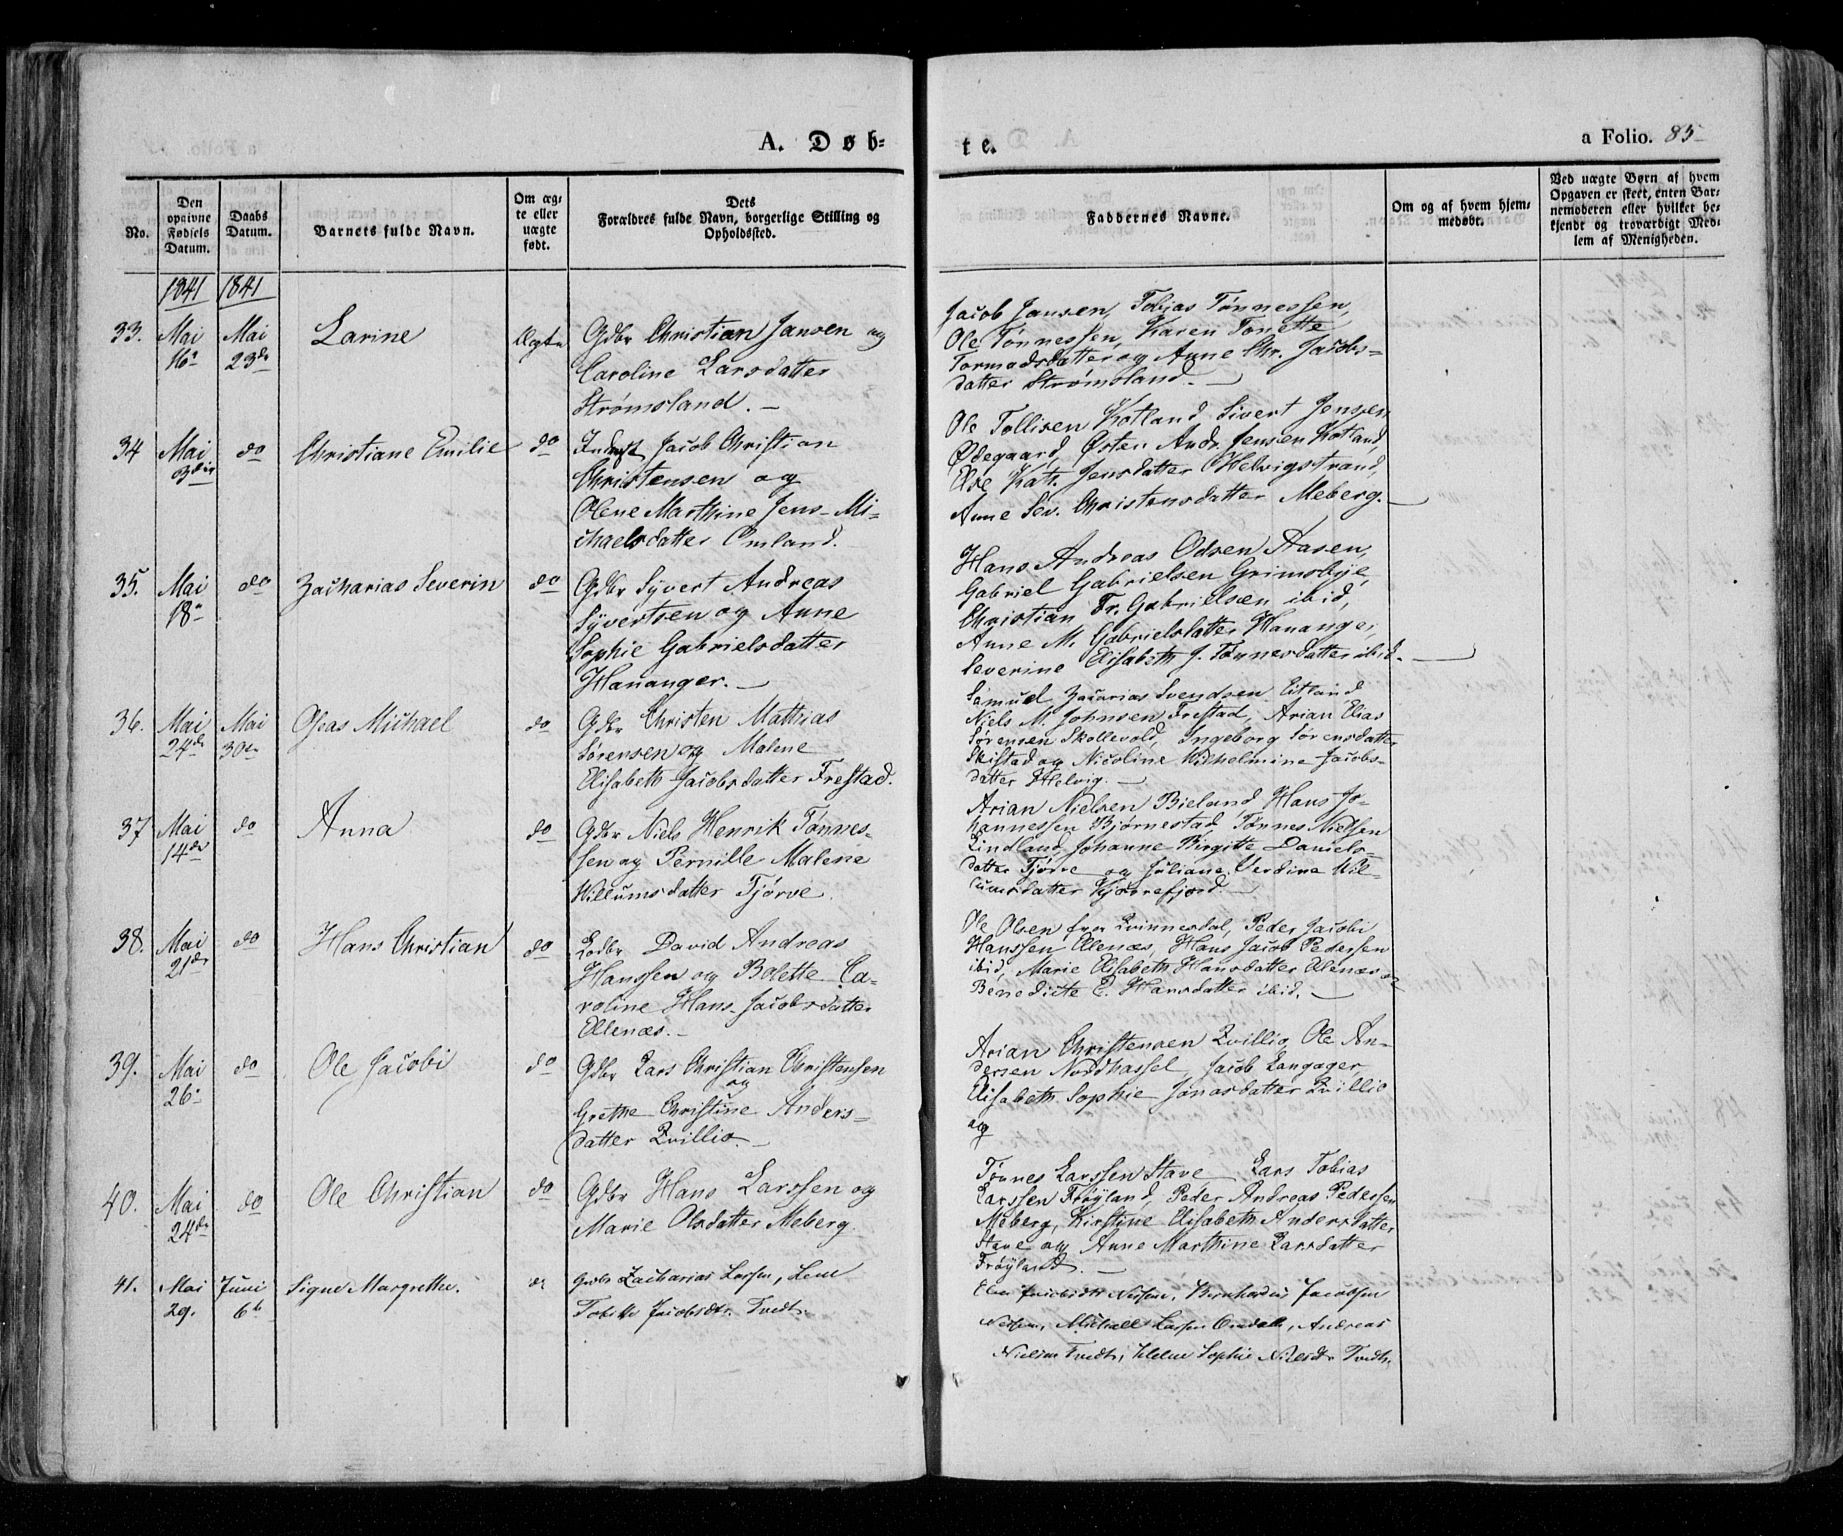 A. Døb=
te.
a Folio. 85
No.
Den opgivne Fødsels Datum.
Daabs Datum.
Barnets fulde Navn.
Om æg-
te eller
uægte
født.
Dets
Forældres fulde Navn, borgerlige Stilling og
Opholdssted.
Faddernes Navne.
Om og af hvem hjem-
medøbt.
Ved uægte Børn af hvem
Opgaven er skeet, enten Bar-
nemoderen eller hvilket be-
kjendt og troværdigt Med-
lem af Menigheden.
1841 1841
33. Mai 16de Mai 23de Larine Ægte
Gdbr Christian Jansen og
Caroline Larsdatter
Strømsland. —
Jacob Jansen, Tobias Tønnessen,
Ole Tønnessen, Karen Tonette
Tormodsdatter og Anne Chr. Jacobs=
datter Strømsland. —
34 Mai 3die do Christiane Emilie do
Inderst Jacob Christian
Christensen og
Olene Marthine Jens-Mi-
chaelsdatter Omland.
Ole Tollisen Kotland Sivert Jensen
Ødegaard, Østen Andr. Jensen Kotland,
Else Kath. Jensdatter Helvigstrand,
Anne Sev. Christensdatter Meberg. —
35. Mai 18de do Zacharias Severin do
Gdbr Syvert Andreas
Syvertsen og Anne
Sophie Gabrielsdatter
Hananger. —
Hans Andreas Odsen Aasen,
Gabriel Gabrielsen Grimsbye,
Christian Fr. Gabrielsen ibid,
Anne M. Gabrielsdatter Hananger,
Severine Elisabeth J. Tønnesdatter ibid. —
36. Mai 24de Mai 30te Oseas Michael do
Gdbr Christen Mathias
Sørensen og Malene
Elisabeth Jacobsdatter Frestad.
Samuel Zacarias Svendsen Eitland
Niels M. Johnsen Frestad, Arian Elias
Sørensen Skollevold, Ingeborg Sørensdatter
Skistad og Nicoline Wilhelmine Jacobs-
datter Helvig. —
37 Mai 14de do Anna do
Gdbr Niels Henrik Tønnes-
sen og Pernille Malene
Willumsdatter Tjørve.
Arian Nielsen Bieland Hans Jo-
hannessen Bjørnestad, Tønnes Nielsen
Lindland, Johanne Birgitte Daniels-
datter Tjørve og Juliane Verdine Wil-
lumsdatter Kjørrefjord. —
38. Mai 21de do Hans Christian do
Gdbr David Andreas
Hanssen og Bolette Ca-
roline Hans-Jacobsdatter
Ellenæs. —
Ole Olsen fra Qvinnesdal, Peder Jacobi
Hanssen Ellenæs, Hans Jacob Pedersen
ibid, Marie Elisabeth Hansdatter Ellenæs og
Benedicte E. Hansdatter ibid. —
39. Mai 26de do Ole Jacobi do
Gdbr Lars Christian Christensen
og
Grethe Christine Anders-
datter Qvillio. —
Arian Christensen Qvillio, Ole An-
dersen Nordhassel, Jacob Langager,
Elisabeth Sophie Jonasdatter Qvillio
og
40. Mai 24de do Ole Christian do
Gdbr Hans Larssen og
Marie Olsdatter Meberg.
Tønnes Larssen Stave, Lars Tobias
Larssen Frøyland, Peder Andreas Pedersen
Meberg, Kirstine Elisabeth Andersdatter
Stave og Anne Marthine Larsdatter
Frøyland. —
41. Mai 29. Juni 6te Signe Margrethe. do
Gdbr Zacharias Larsen, Lene
Tobitte Jacobsdt. Tvedt.
Jacobsdt. Bernhardus Jacobsen
Michael Larsen Omdal, Andreas
Nielsen Tvedt, Helene Sophie Nielsdt. Tvedt.